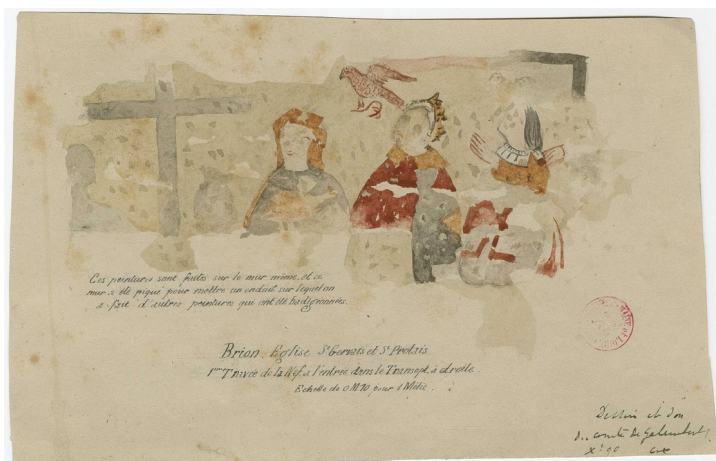 Ces peintures sont faites sur le mur même, et ce
mur a été piqué pour mettre un enduit sur lequel on
a fait d'autres peintures qui ont été badigeonnées.
Brion. Eglise St Gervais et St Protais.
1ere Travée de la Nef à l'entrée dans le Transept à droite.
Echelle de 0 M. 10 pour 1 Mètre.
Dessin et don
du comte de Galembert